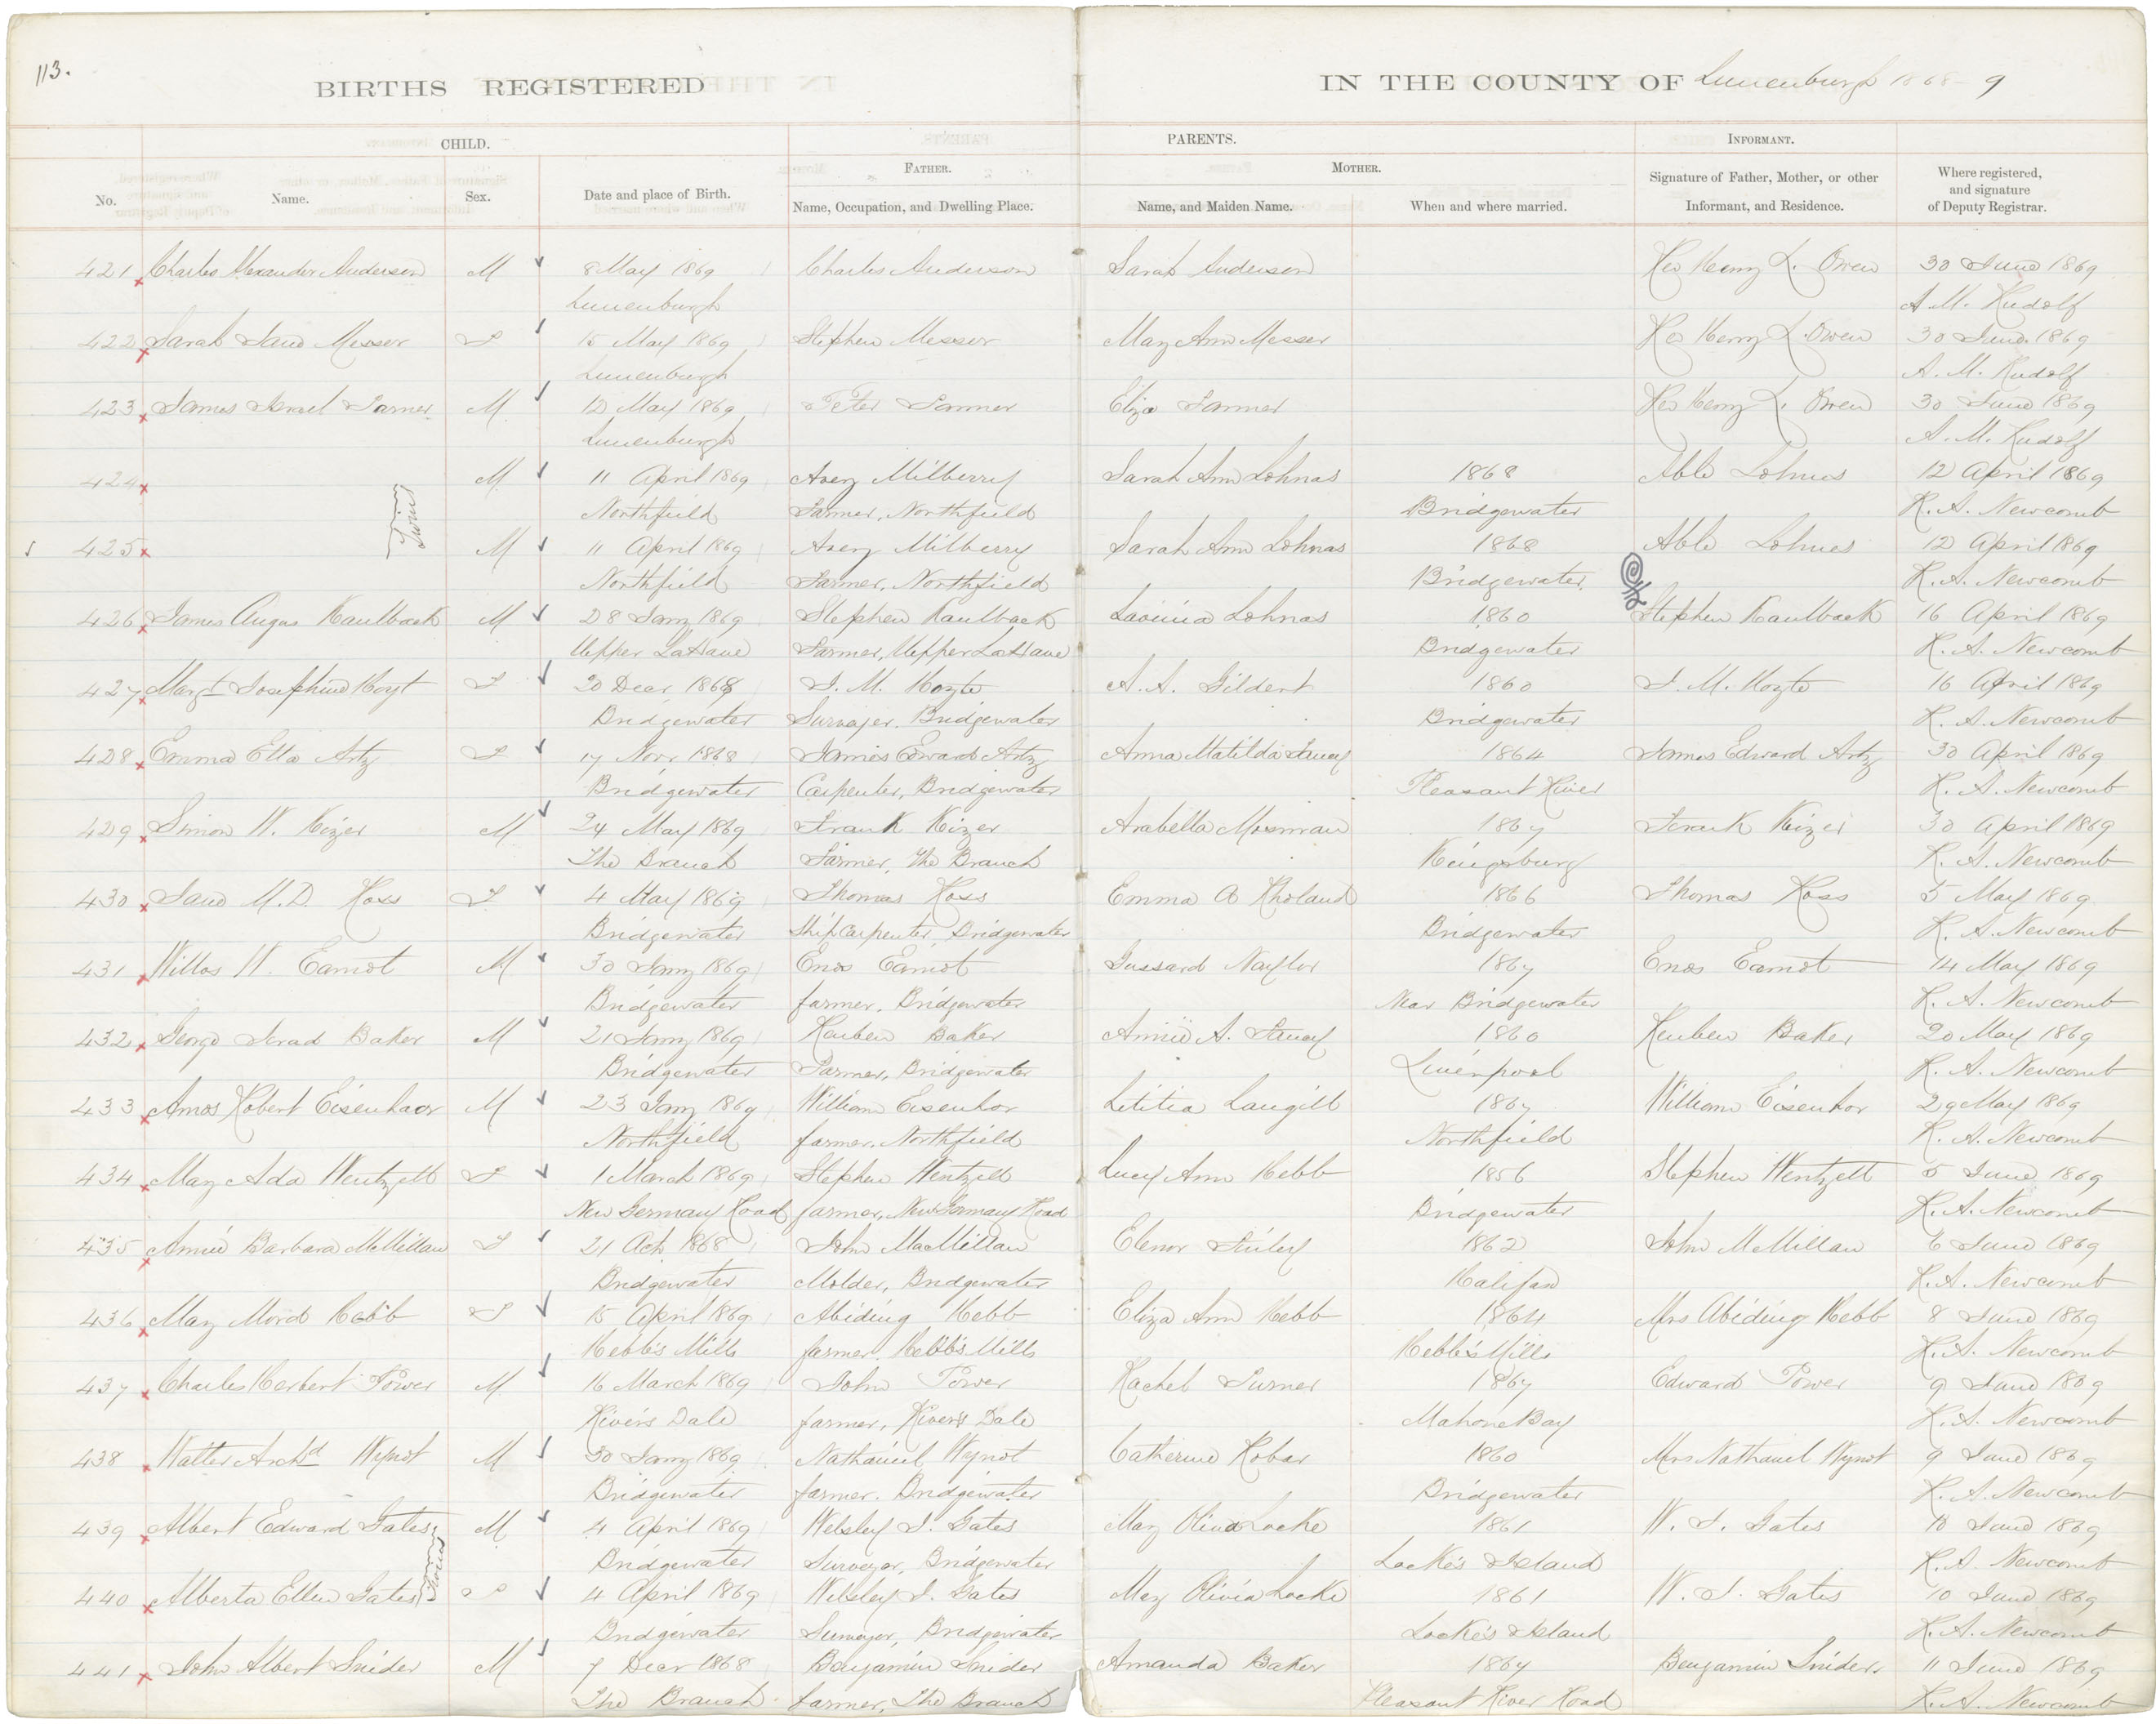 113.
BIRTHS REGISTERED IN THE COUNTY OF Lunenburgh 1868-9
CHILD. PARENTS. INFORMANT.
FATHER. MOTHER.
No. Name. Sex. Date and place of Birth. Name, Occupation, and Dwelling Place. Name, and Maiden Name. When and where married. Signature of Father, Mother, or other Informant, and Residence. Where registered, and signature of Deputy Registrar.
421 Charles Alexander Anderson M 8 May 1869 Charles Anderson Sarah Anderson Rev Henry L. Owen 30 June 1869
Lunenburgh A. M. Rudolf
422 Sarah Jane Messer F 15 May 1869 Stephen Messer Mary Ann Messer Rev Henry L. Owen 30 June 1869
Lunenburgh A. M. Rudolf
423 James Israel M 12 May 1869 Peter Eliza Rev Henry L. Owen 30 June 1869
Lunenburgh A. M. Rudolf
424 M 11 April 1869 Avery Milberry Sarah Ann Lohnas 1868 Able Lohnes 12 April 1869
Twins
Northfield Farmer, Northfield Bridgewater R. A. Newcomb
425 M 11 April 1869 Avery Milberry Sarah Ann Lohnas 1868 Able Lohnes 12 April 1869
Northfield Farmer, Northfield Bridgewater R. A. Newcomb
426 James Angus Kaulback M 28 Jany 1869 Stephen Kaulback Lavinia Lohnas 1860 Stephen Kaulback 16 April 1869
Upper LaHave Farmer, Upper LaHave Bridgewater R. A. Newcomb
427 Margt Josephine Hoyt F 20 Decr 1868 J. M. Hoyte A. A. Gildert 1860 J. M. Hoyte 16 April 1869
Bridgewater Survayer. Bridgewater Bridgewater R. A. Newcomb
428 Emma Ella Artz F 17 Novr 1868 James Edward Artz Anna Matilda 1864 James Edward Artz 30 April 1869
Bridgewater Carpenter, Bridgewater Pleasant River R. A. Newcomb
429 Simon W. Kizer M 24 May 1869 Frank Kizer Arabella Mosman 1867 Frank Kizer 30 April 1869
The Branch Farmer, The Branch Kingsburg R. A. Newcomb
430 Jane M. D. Ross F 4 May 1869 Thomas Ross Emma A Rholand 1866 Thomas Ross 5 May 1869
Bridgewater Ship Carpenter, Bridgewater Bridgewater R. A. Newcomb
431 W. M 30 Jany 1869 Enos Naylor 1867 Enos 14 May 1869
Bridgewater farmer, Bridgewater Near Bridgewater R. A. Newcomb
432 George Baker M 21 Jany 1869 Reuben Baker Annie A. 1860 Reuben Baker 20 May 1869
Bridgewater Farmer, Bridgewater Liverpool R. A. Newcomb
433 Amos Robert Eisenhaor M 23 Jany 1869 William Eisenhor Letitia Langill 1867 William Eisenhor 29 May 1869
Northfield farmer, Northfield Northfield R. A. Newcomb
434 May Ada Wentzell F 1 March 1869 Stephen Wentzell Lucy Ann Hebb 1856 Stephen Wentzell 5 June 1869
New Germany Road farmer, New Germany Road Bridgewater R. A. Newcomb
435 Annie Barbara McMillan F 21 Oct 1868 John MacMillan Elenor 1862 John McMillan 6 June 1869
Bridgewater Molder, Bridgewater Halifax R. A. Newcomb
436 May Hebb F 15 April 1869 Abiding Hebb Eliza Ann Hebb 1864 Mrs Abiding Hebb 8 June 1869
Hebb's Mills farmer. Hebb's Mills Hebb's Mills R. A. Newcomb
437 Charles Herbert Power M 16 March 1869 John Power Rachel Turner 1867 Edward Power 9 June 1869
River's Dale farmer, River's Dale Mahone Bay R. A. Newcomb
438 Walter Archd Wynot M 30 Jany 1869 Nathaniel Wynot Catherine Robar 1860 Mrs Nathaniel Wynot 9 June 1869
Bridgewater farmer. Bridgewater Bridgewater R. A. Newcomb
439 Albert Edward Gates M 4 April 1869 Welsley J. Gates May Olivia Locke 1861 W. J. Gates 10 June 1869
Twins
Bridgewater Surveyor, Bridgewater Locke's Island R. A. Newcomb
440 Alberta Ellen Gates F 4 April 1869 Welsley J. Gates May Olivia Locke 1861 W. J. Gates 10 June 1869
Bridgewater Surveyor, Bridgewater Locke's Island R. A. Newcomb
441 John Albert Snider M 7 Decr 1868 Benjamin Snider Amanda Baker 1867 Benjamin Snider 11 June 1869
The Branch farmer, The Branch Pleasant River Road R. A. Newcomb